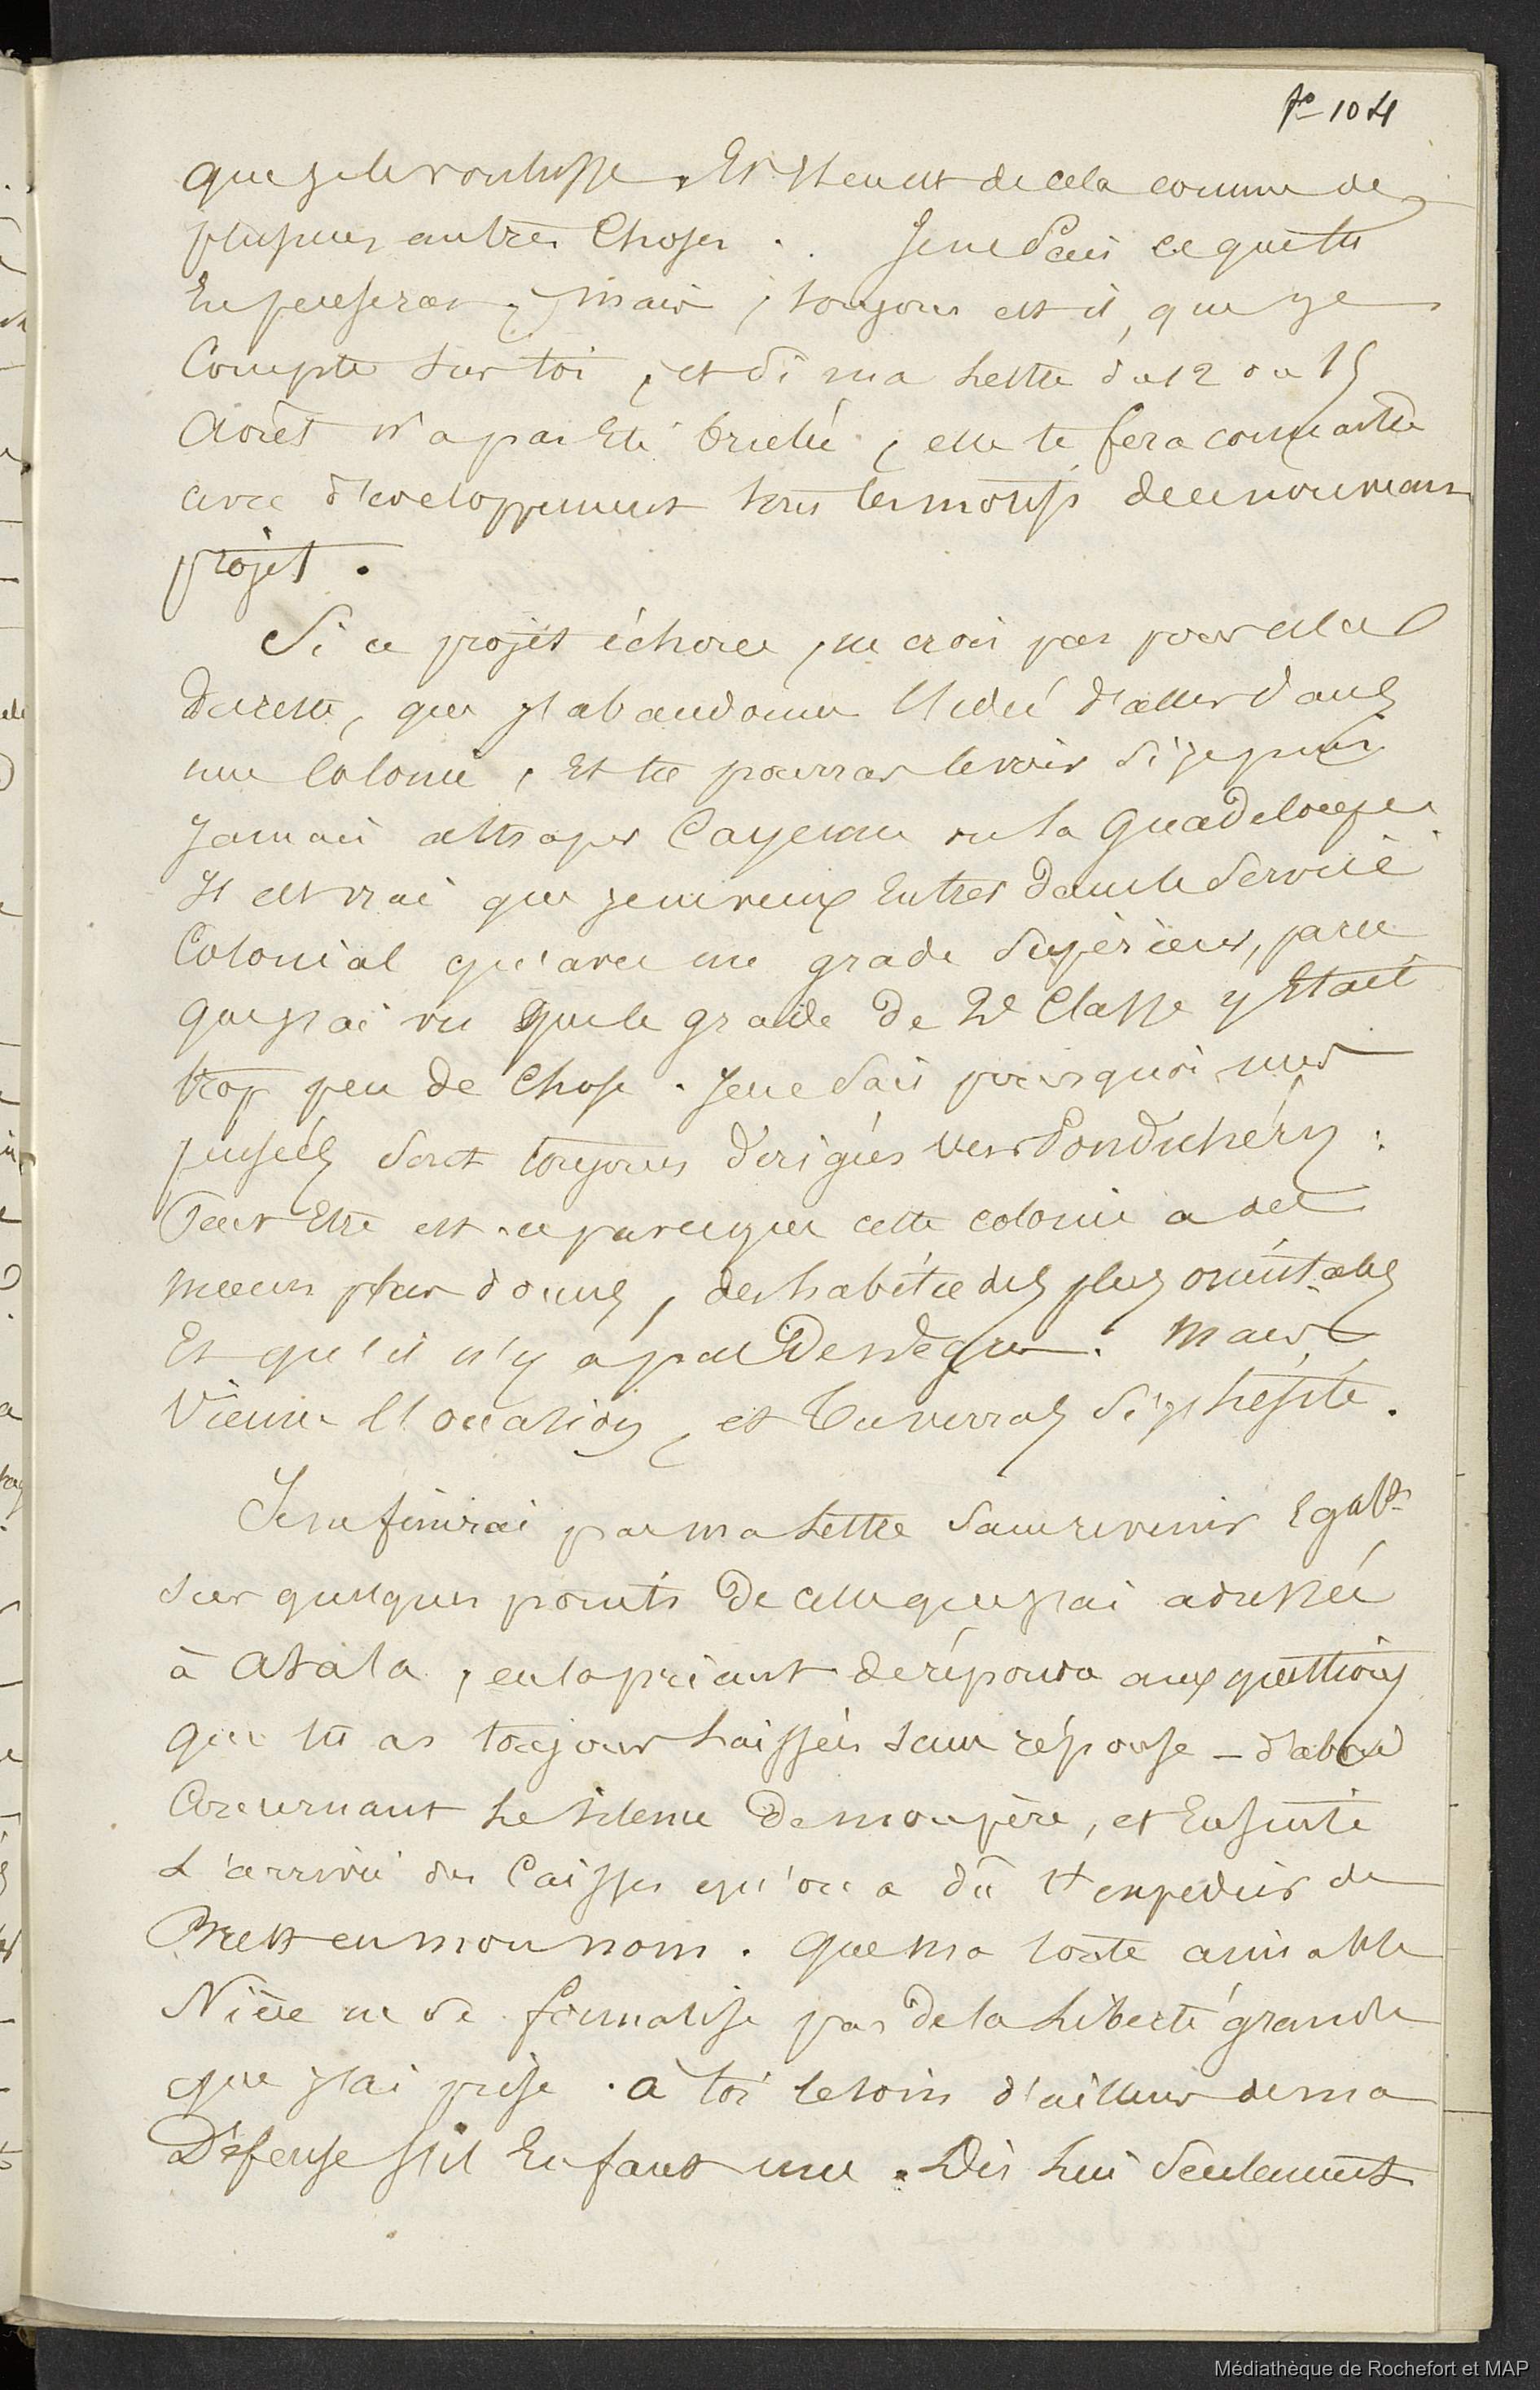 fo 104
que je le voulusse. Et Il en est de cela comme de
plusieurs autres Choses. Je ne Sais ce que tu
En penseras, mais, toujours est il, que je
Compte sur toi, et Si ma Lettre du 12 ou 15
Août n'a pas Eté brulée, elle te fera connaître
avec développement tous les motifs de ce nouveau
projet.
Si ce projet échoue, ne crois pas pour cela
du reste, que j'abandonne l'idée d'aller dans
une Colonie, Et tu pourras le voir Si je puis
Jamais attraper Cayenne ou la Guadeloupe.
Il est vrai que je ne veux Entrer dans le Service
Colonial qu'avec un grade Supérieur, parce
que j'ai vu que le grade de 2e Classe y Etait
trop peu de Chose. Je ne Sais pourquoi mes
pensées Sont toujours dirigées vers Pondichéry:
Peut Etre est-ce parceque cette colonie a des
mœurs plus douces, des habitudes plus orientales
Et qu'il n'y a pas De nègres. Mais
Vienne l'occasion, et tu verras Si j'hésite.
Je ne finirai pas ma Lettre Sans revenir Egalt
sur quelques points De celle que j'ai adressée
à Atala, en la priant de répondre aux questions
que tu as toujours Laissées sans réponse - d'abord
Concernant Le silence De mon père, et Ensuite
L'arrivée des Caisses qu'on a dû t'expedier de
Brest en mon nom. Que ma toute aimable
Nièce ne se formalise pas De la Liberté grande
que j'ai prise. à toi le soin d'ailleurs de ma
Défense s'il En faut une. Dis Lui Seulement
Médiathèque de Rochefort et MAP